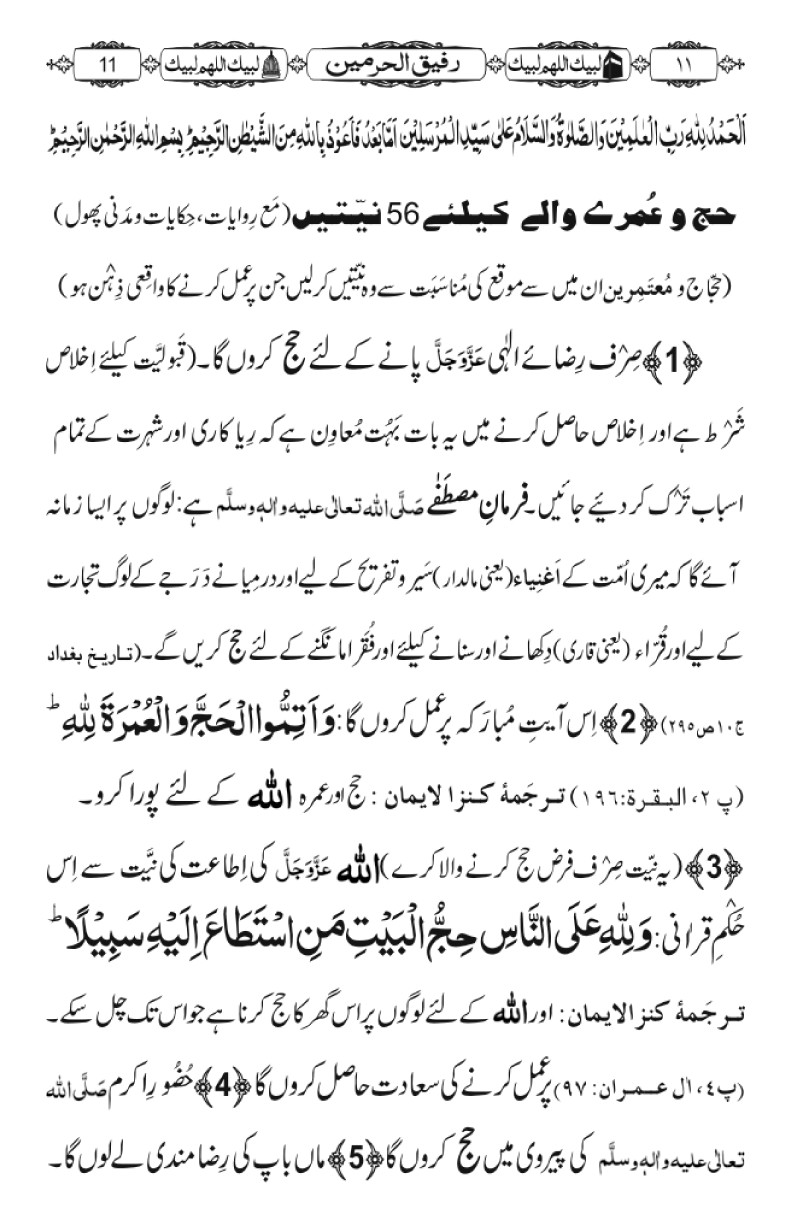 ۱۱ لبیك اللهم لبیك رفیق الحرمین لبیك اللهم لبیك 11
اَلْحَمْدُ لِلّٰهِ رَبِّ الْعٰلَمِیْنَ وَالصَّلٰوةُ وَالسَّلَامُ عَلٰی سَیِّدِ الْمُرْسَلِیْنَ اَمَّا بَعْدُ فَاَعُوْذُ بِاللّٰهِ مِنَ الشَّیْطٰنِ الرَّجِیْمِ ؕ بِسْمِ اللّٰهِ الرَّحْمٰنِ الرَّحِیْمِ ؕ
حج و عُمرے والے کیلئے 56 نیّتیں (مَع رِوایات، حِکایات و مَدَنی پھول)
(حُجّاج و مُعتَمِرین ان میں سے موقع کی مُناسَبَت سے وہ نیّتیں کرلیں جن پر عمل کرنے کا واقِعی ذِہْن ہو)
﴿1﴾ صِرْف رِضائے الٰہی عَزَّوَجَلَّ پانے کے لئے حج کروں گا۔ (قَبولیَّت کیلئے اِخلاص
شَرْط ہے اور اِخلاص حاصل کرنے میں یہ بات بَہُت مُعاوِن ہے کہ رِیا کاری اور شہرت کے تمام
اسباب تَرْک کر دیئے جائیں۔ فرمانِ مصطَفٰے صَلَّی اللہ تعالٰی علیہ واٰلہٖ وسلَّم ہے: لوگوں پر ایسا زمانہ
آئے گا کہ میری اُمّت کے اَغنِیاء (یعنی مالدار) سَیر و تفریح کے لیے اور درمیانے دَرَجے کے لوگ تجارت
کے لیے اور قُرّاء (یعنی قاری) دِکھانے اور سنانے کیلئے اور فُقَرا مانگنے کے لئے حج کریں گے۔ (تاریخ بغداد
ج۱۰ ص۲۹۵) ﴿2﴾ اِس آیتِ مُبارَکہ پر عمل کروں گا: وَاَتِمُّوا الْحَجَّ وَالْعُمْرَةَ لِلّٰهِ ؕ
(پ ۲، البقرة: ۱۹٦) ترجَمۂ کنزا لایمان: حج اور عمرہ اللہ کے لئے پورا کرو۔
﴿3﴾ (یہ نیّت صِرْف فرض حج کرنے والا کرے) اللہ عَزَّوَجَلَّ کی اِطاعت کی نیَّت سے اِس
حُکْمِ قرانی: وَلِلّٰهِ عَلَی النَّاسِ حِجُّ الْبَیْتِ مَنِ اسْتَطَاعَ اِلَیْهِ سَبِیْلًا ؕ
ترجَمۂ کنز الایمان: اور اللہ کے لئے لوگوں پر اس گھر کا حج کرنا ہے جو اس تک چل سکے۔
(پ٤، اٰل عمران: ۹۷) پر عمل کرنے کی سعادت حاصل کروں گا ﴿4﴾ حُضُورِ اکرم صَلَّی اللہ
تعالٰی علیہ واٰلہٖ وسلَّم کی پیروی میں حج کروں گا ﴿5﴾ ماں باپ کی رِضا مندی لے لوں گا۔